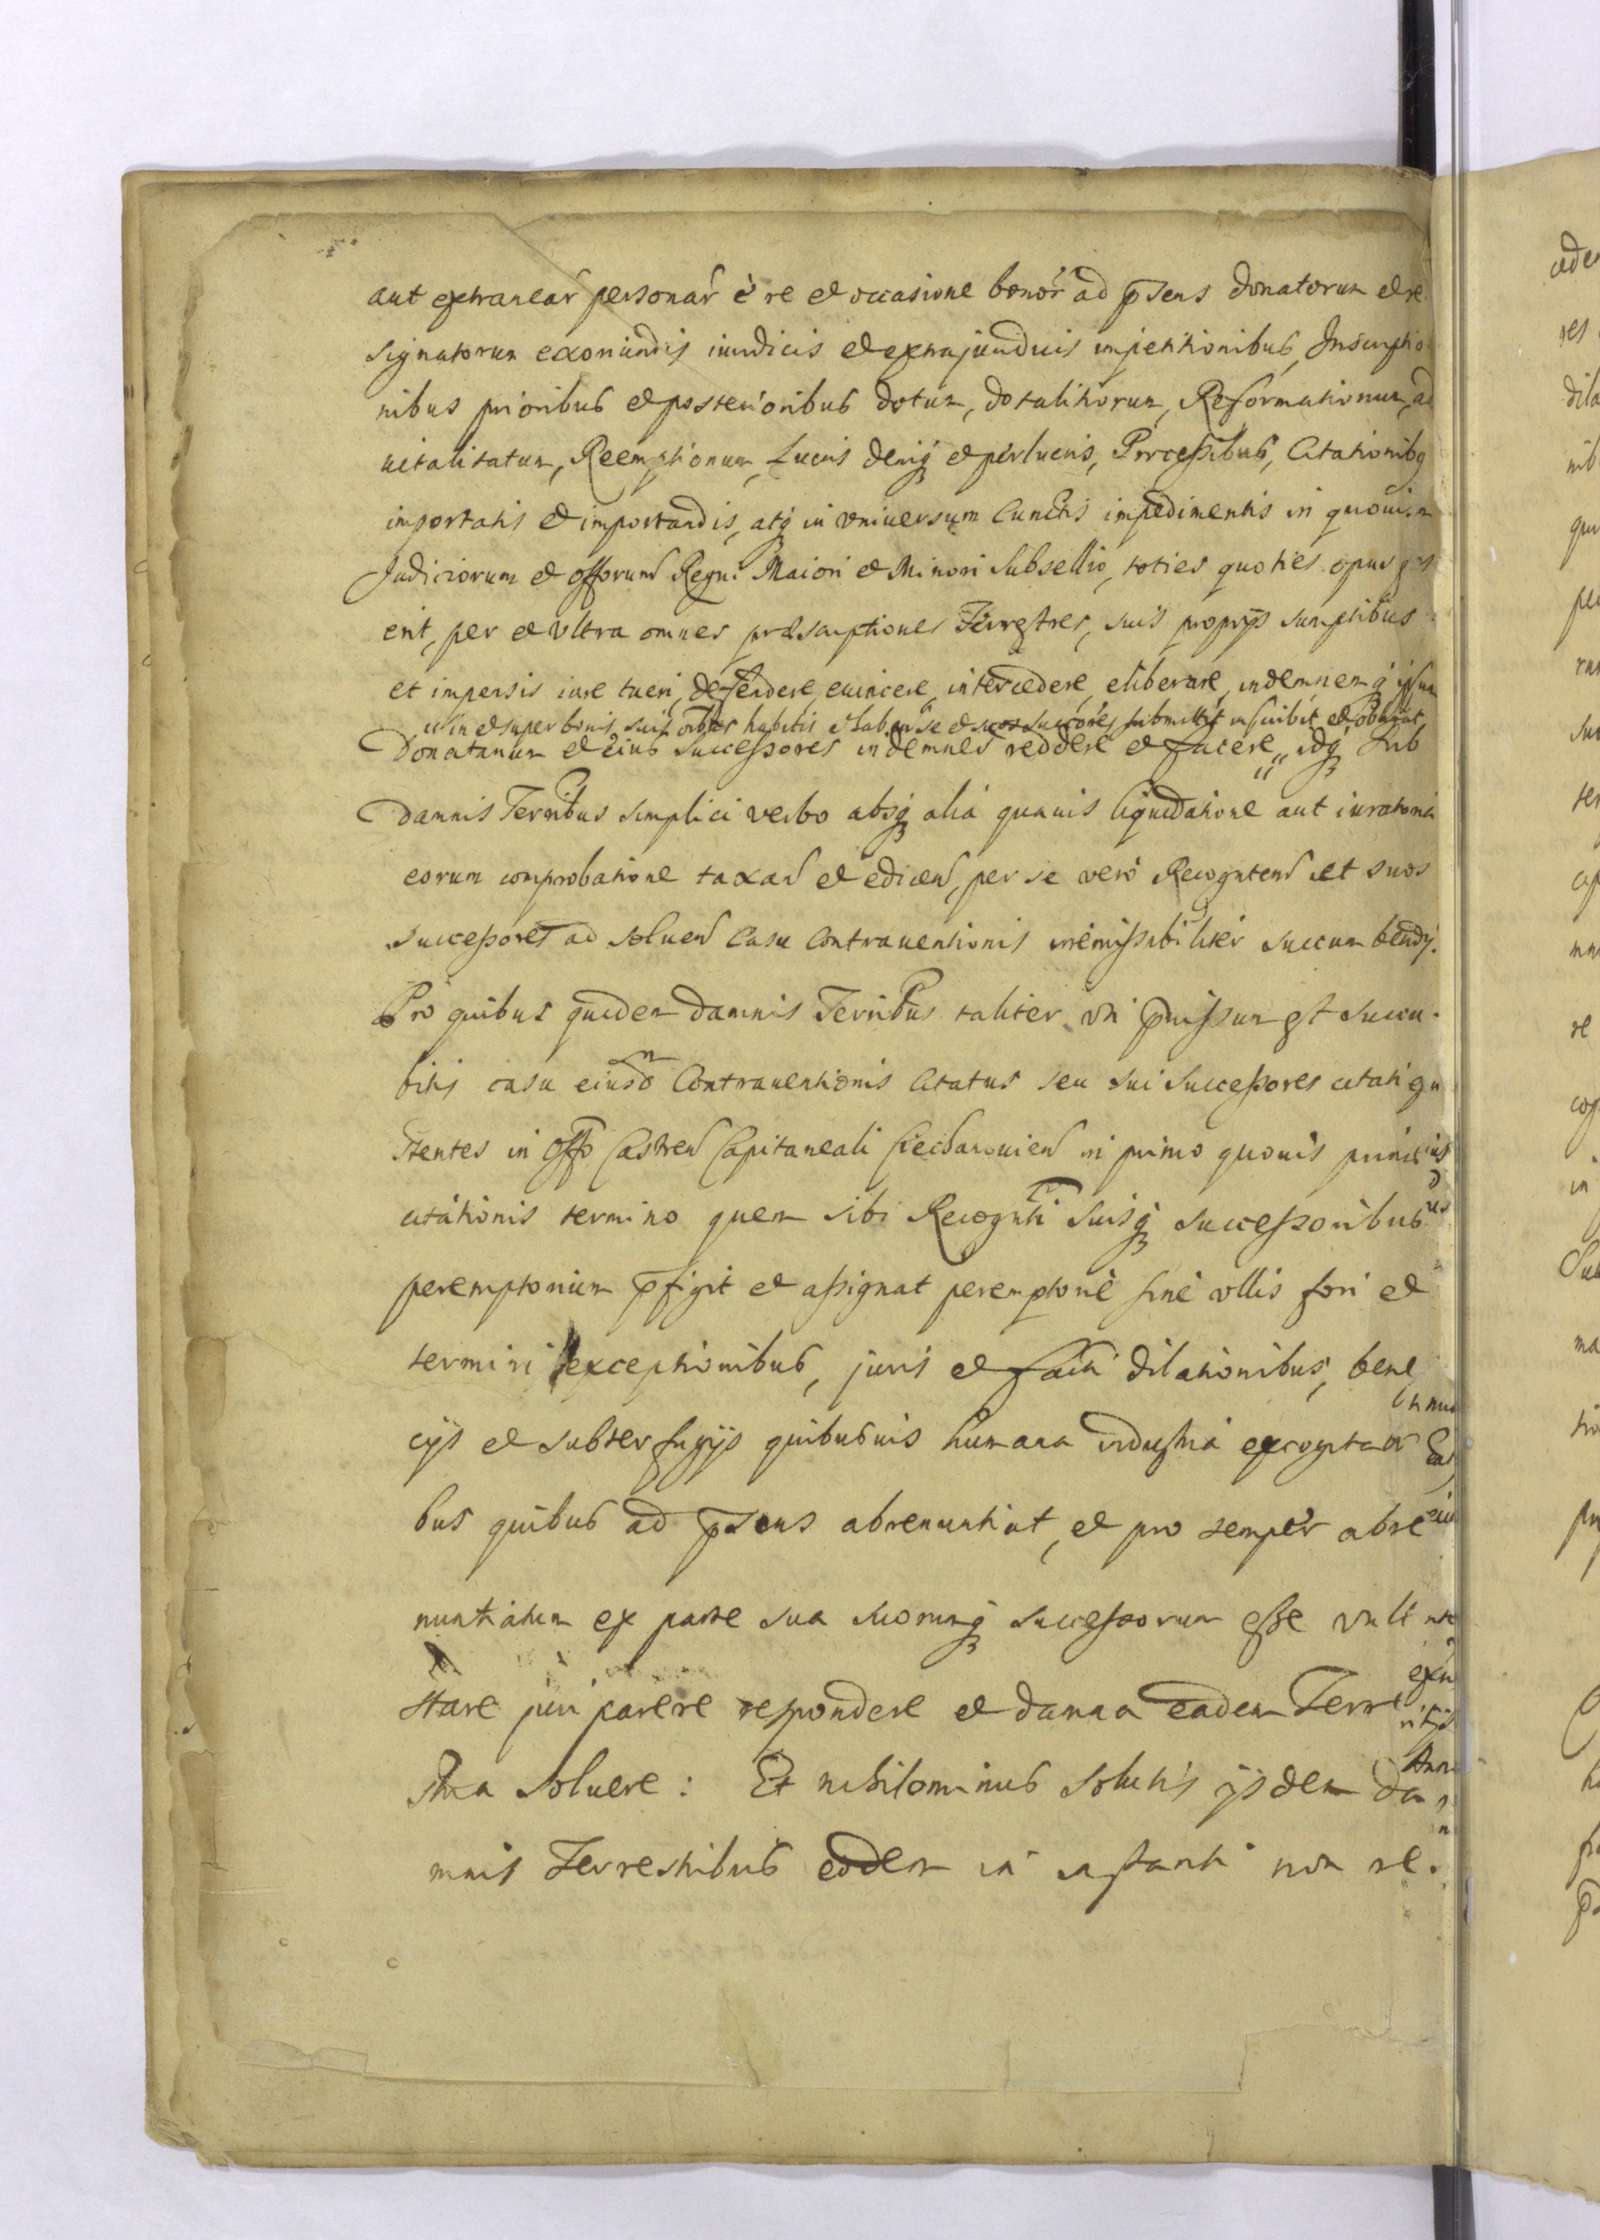 aut extranear personar è re et occasione bonor ad psens donatorum et re
signatorum exoriundis iuridicis et extrajuridicis impetitionibus, Inscriptio
nibus prioribus et posterioribus dotum, dotalitiorum, Reformationum, ad
uitalitatum, Reemptionum, Lucris deniq et perlucris, Processibus, Citationibq
importatis et importandis, atq in vniuersum cunctis impedimentis in quouis
Judiciorum et offorum Regni Maiori et Minori subsellio, toties quoties opus
erit, per et vltra omnes præscriptiones Terrestres, suis proprijs sumptibus
et impensis iure tueri, defendere, euincere, intercedere, eliberare, indemnemq ipsum
in et super bonis suis oibus habitis et hab se et suos succores submittit inscribit et obligat
Donatarium et eius successores indemnes reddere et facere, idq sub
damnis Terribus simplici verbo absq alia quauis liquidatione aut iuratoria
eorum comprobatione taxan et edicen, per se verò Recognten et suos
successores ad soluen casu contrauentionis irremissibiliter succumbendj.
Pro quibus quidem damnis Terribus taliter vti pmissum est succu.
bitis casu eiusdm Contrauentionis citatus seu sui successores citati
stentes in offo Castren Capitaneali Ciechanouien in primo quouis
citationis termino quem sibi Recognti suisq successoribus
peremptorium pfigit et assignat peremptoriè sine vllis fori et
termini exceptionibus, juris et facti dilationibus, bene
cijs et subterfugijs quibusuis humana industria excogita
bus quibus ad psens abrenuntiat, et pro semper abre
nuntiatum ex parte sua suorumq successorum esse vult
stare juri parere respondere et damna eadem Terre
stria soluere: Et nihilominus solutis ijsdem da
mnis Terrestribus eodem in instanti non re.